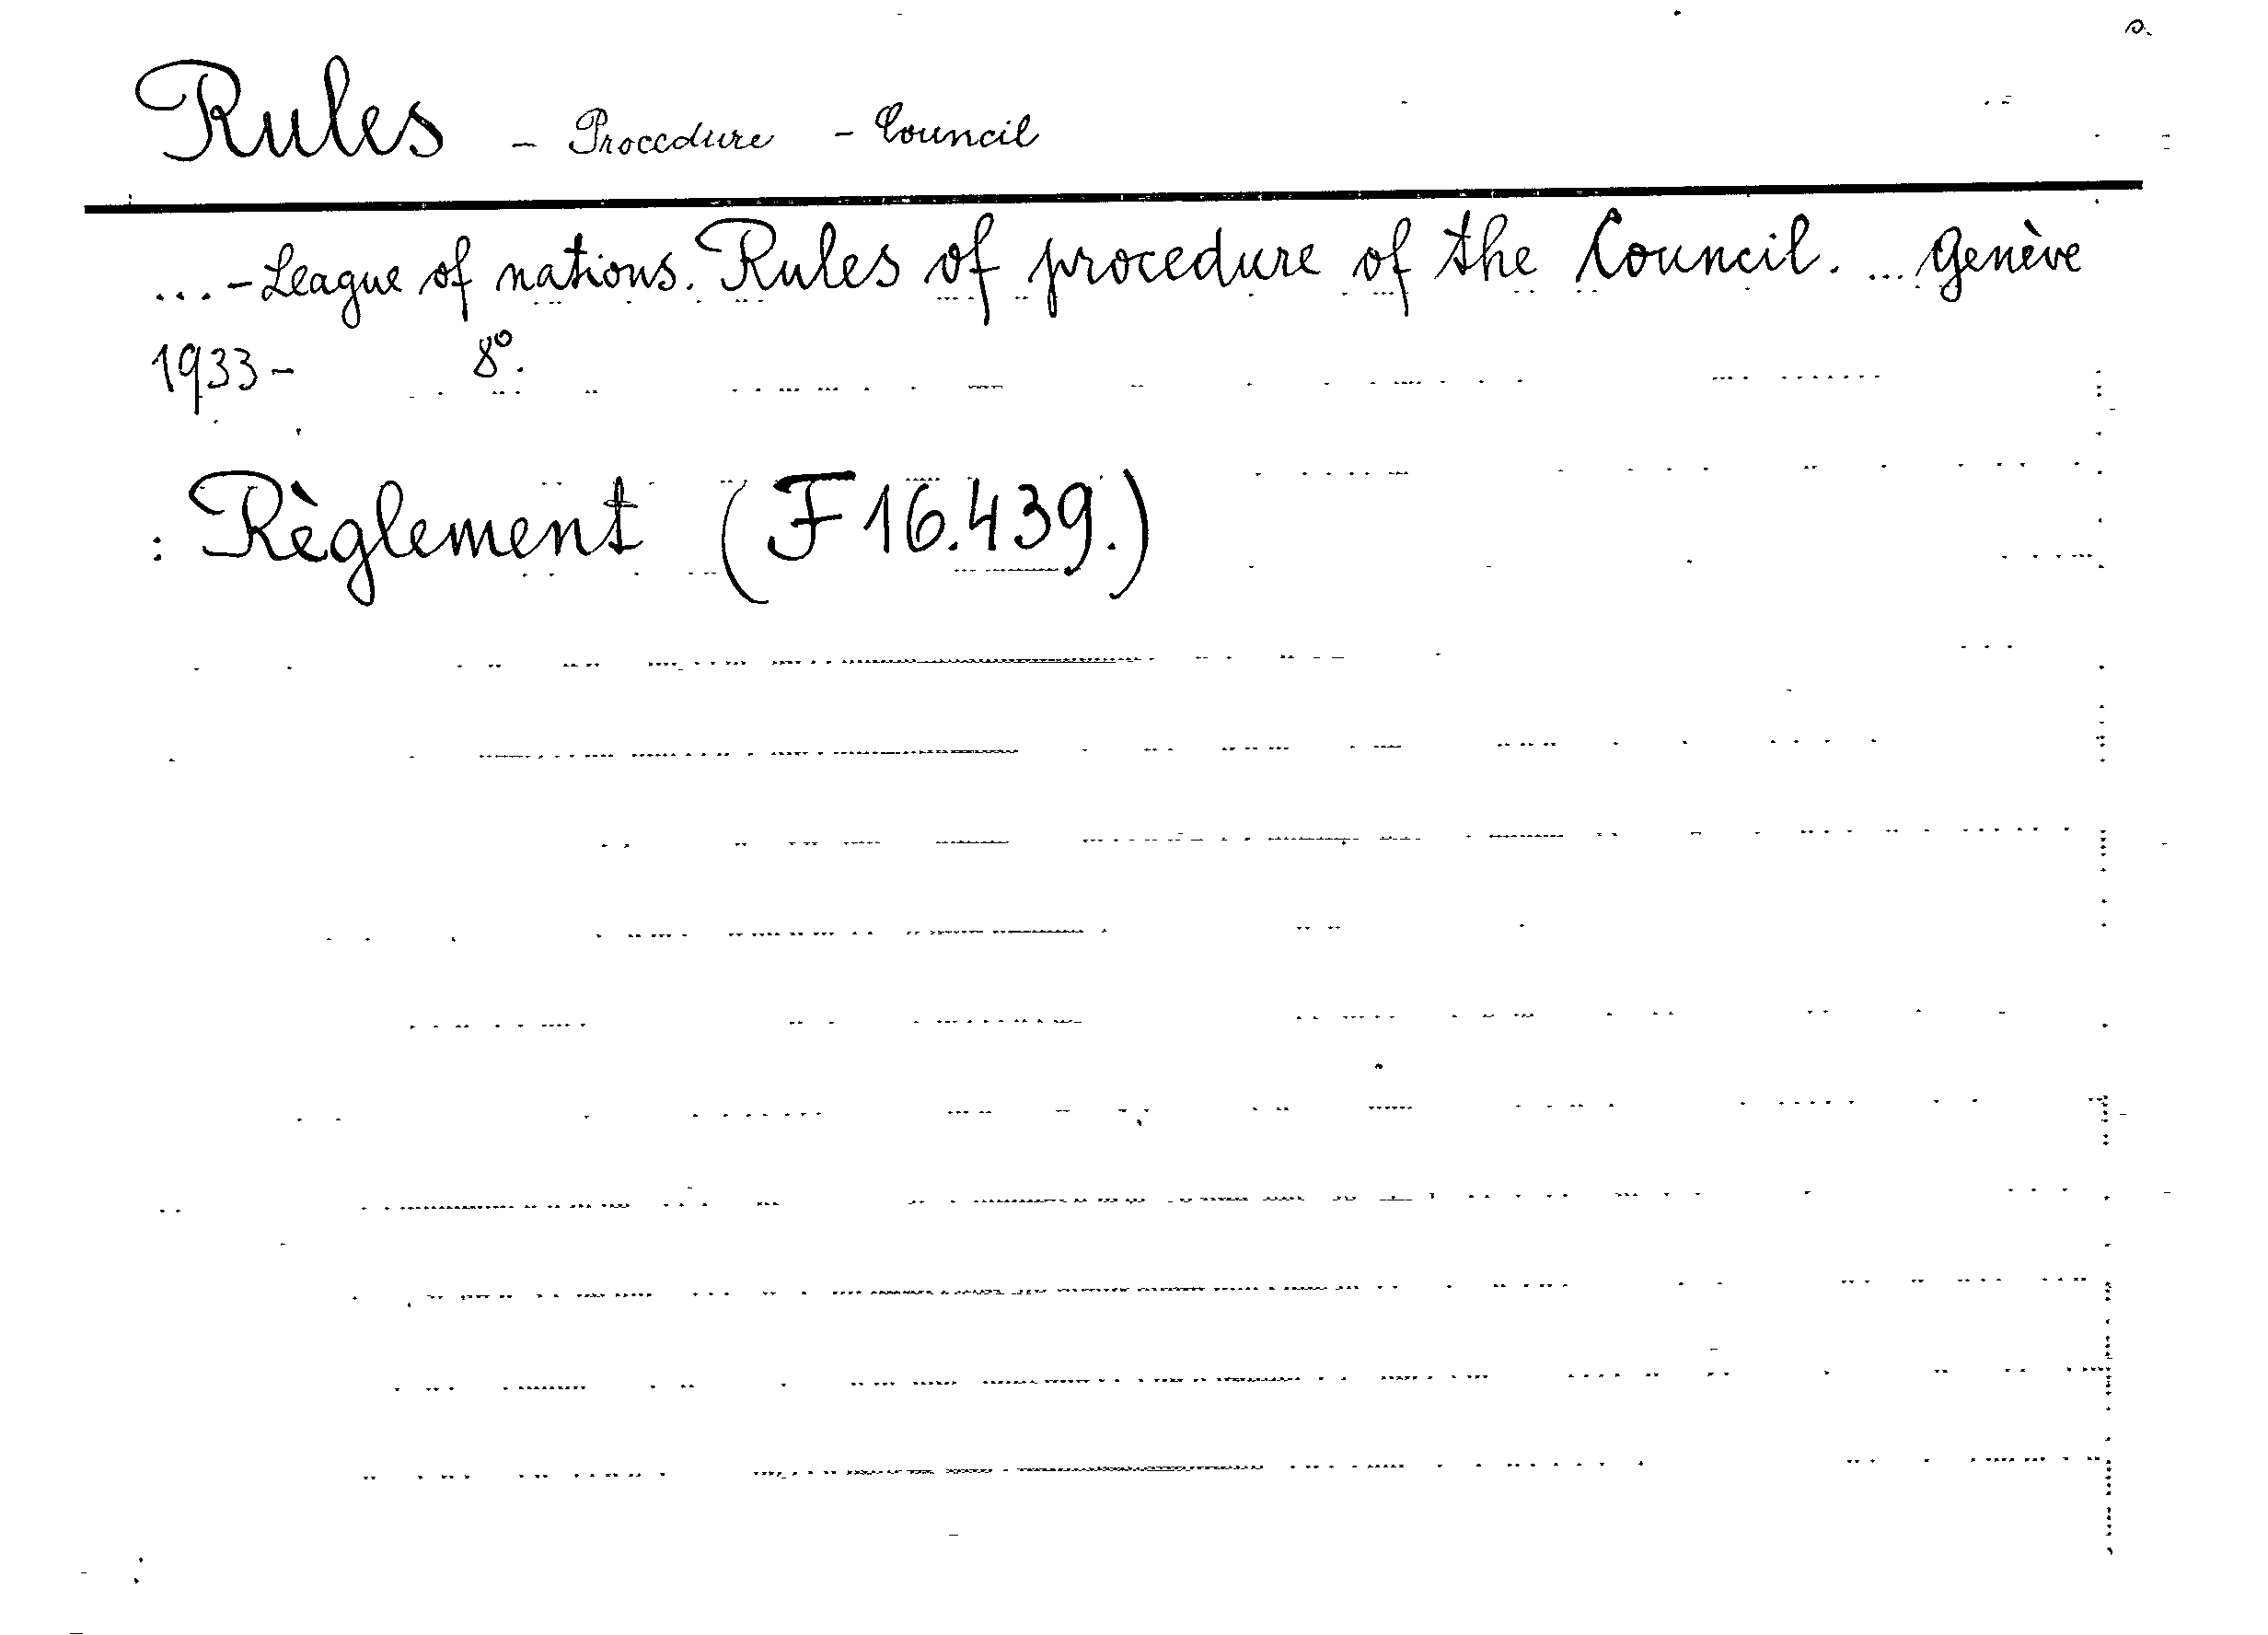 Rules - Procedure - Council
... - League of nations. Rules of procedure of the Council. ... Genève
1933 - 8°.
: Règlement (F 16.439.)